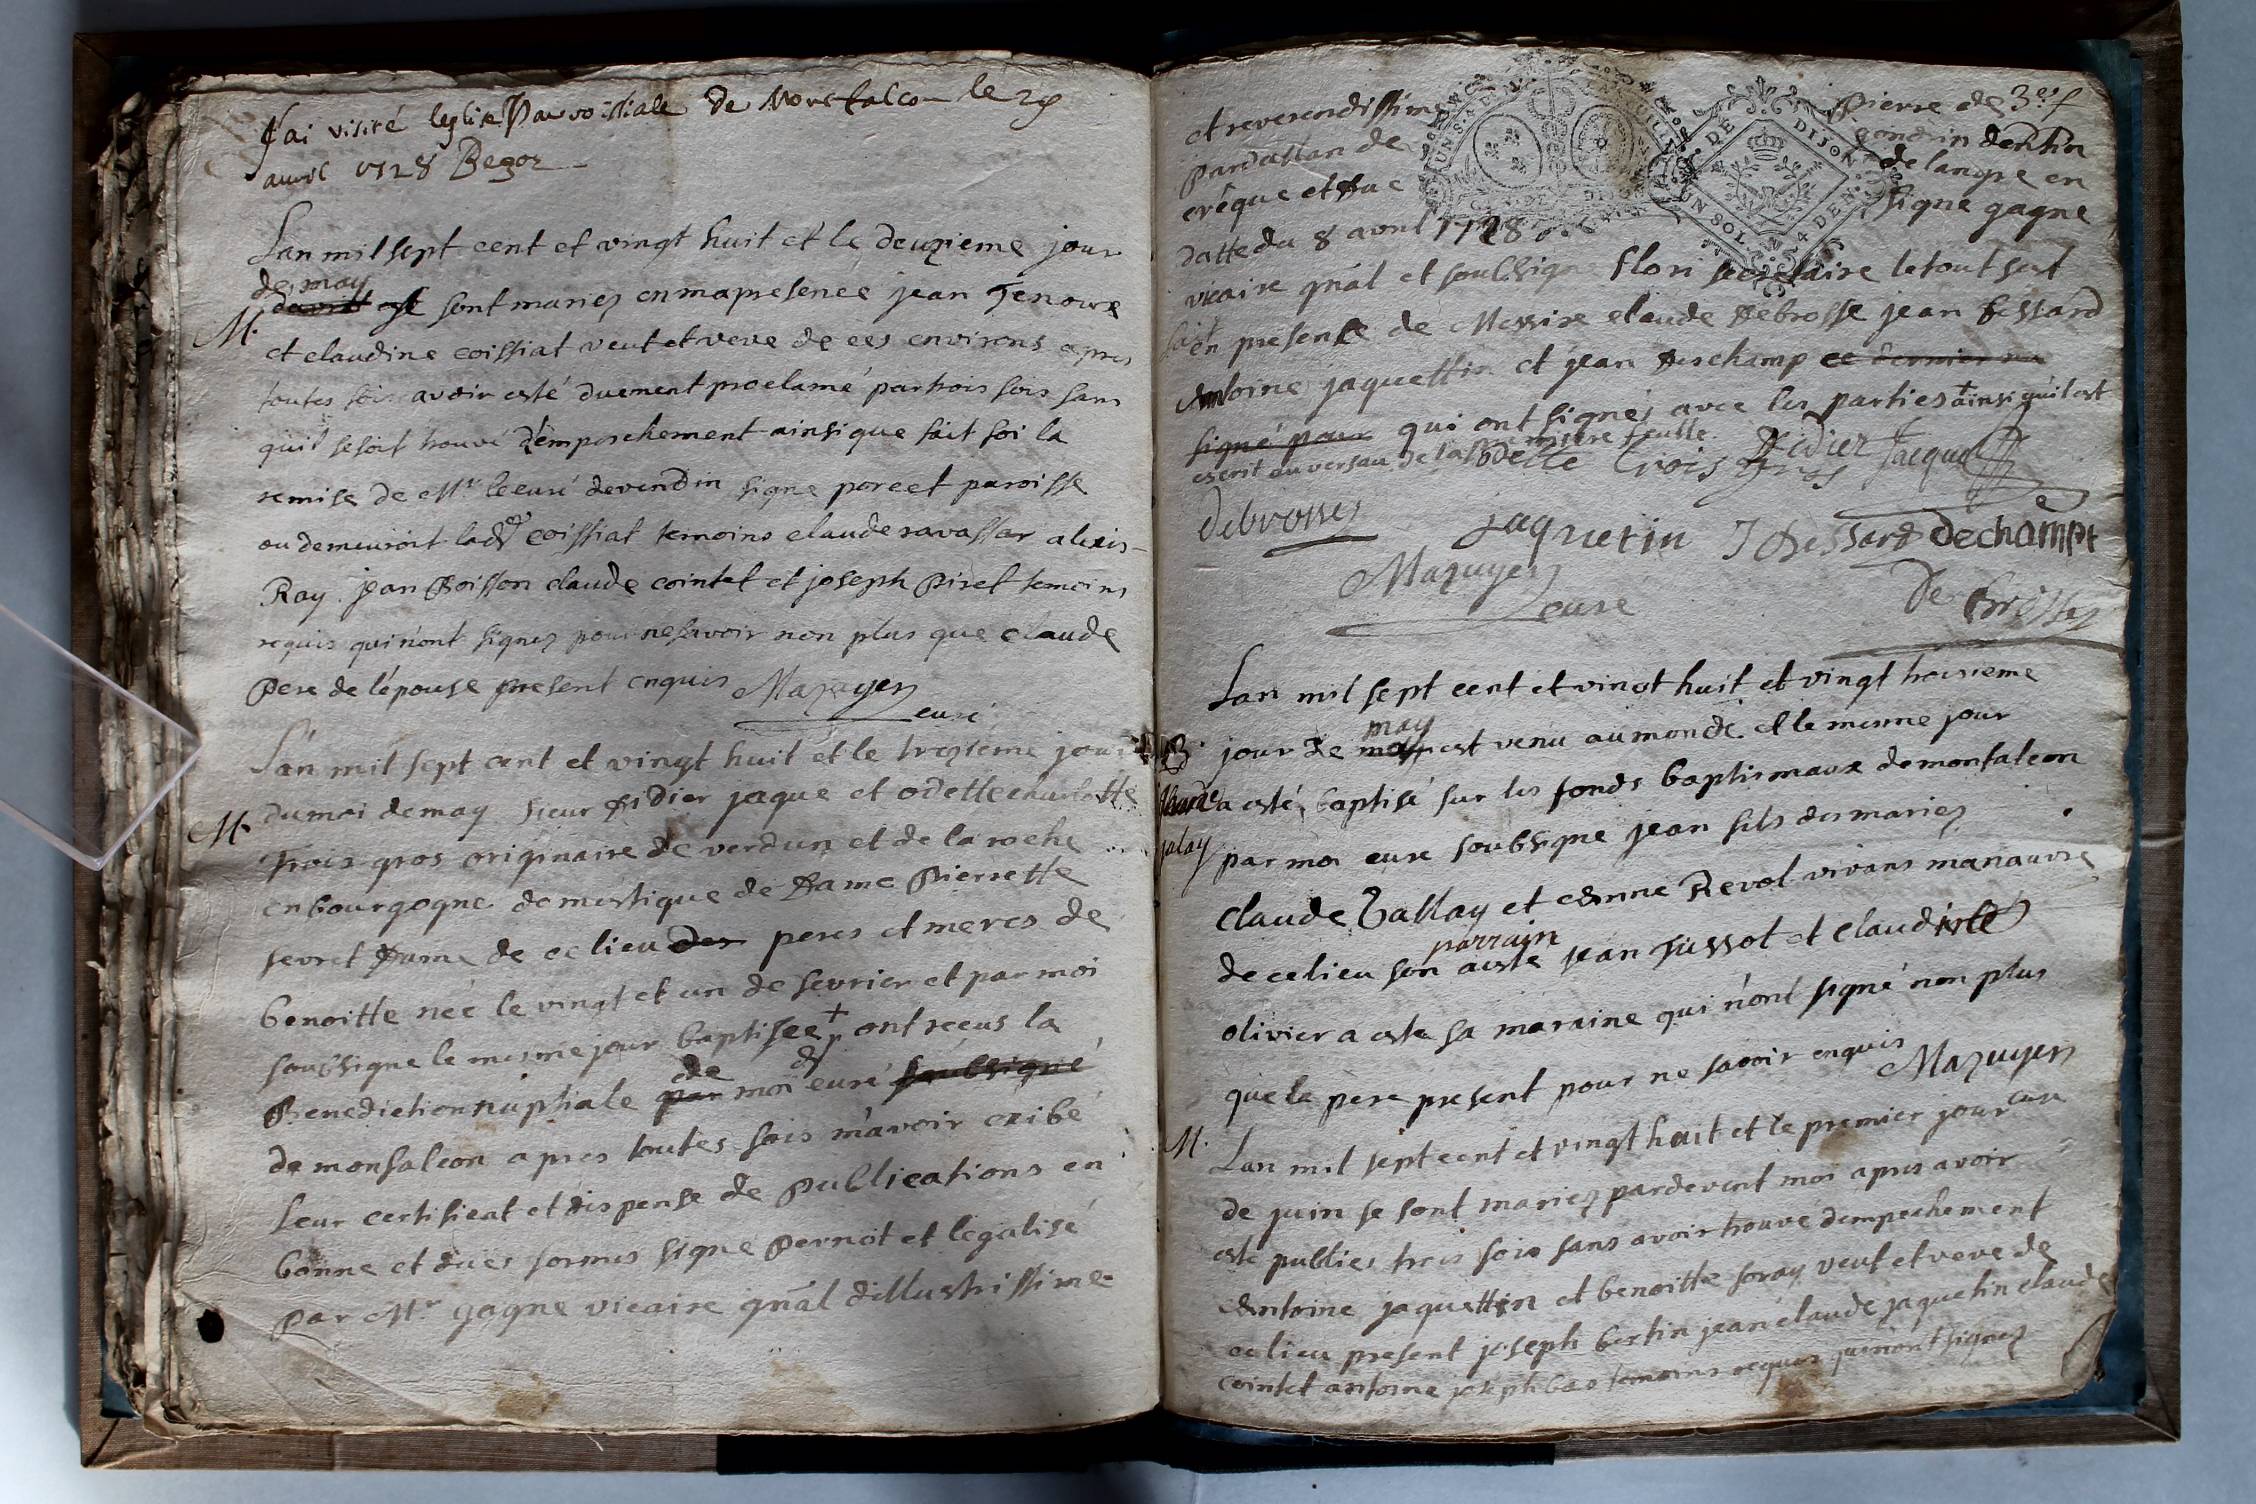 J'ai visité leglise Parroissiale de Montfalcon le 29
auvril 1728 Begoz
Lan mil sept cent et vingt huit et le deuzieme jour
de may
davril se sont mariez en ma presence jean Tenoux
M.
et claudine coissiat veuf et veve de ces environs apres
toutes fois avoir esté duement proclamé par trois fois sans
qu'il se soit trouvé d'emposchement ainsi que fait foi la
remise de Mr le curé devendin signe porcet paroisse
ou demeuroit lade coissiat temoins claude ravassar alexis
Ray jean Poisson claude cointet et joseph Piret temoins
requis qui n'ont signez pour ne savoir non plus que claude
Pere de l'épouse present enquis Mazuyer
curé
L'an mil sept cent et vingt huit et le trezieme jour
du moi de may sieur didier jaque et odette charlotte
M.
Trois gros originaire de verdun et de la roche
en bourgogne domestique de Dame Pierrette
sevret Dame de ce lieu des peres et meres de
benoitte née le vingt et un de fevrier et par moi
soubsigne le mesme jour baptisee + ont receus la
Benediction nuptiale par de moi curé soubsigné
de monfalcon apres toutes fois m'avoir exibé
Leur certificat et dispense de publications en
bonne et dues formes signe Pernot et legalisé
par Mr gagne vicaire gnal dillustrissime
et reverendissime Pierre de
Pardaillan de gondrin dentin
evêque et duc de langre en
datte du 8 avril 1728 signe gagne
vicaire gnal et soubsigne flori secretaire le tout fait
en presence de Messire claude Debrosse jean bessard
Antoine jaquettin et jean deschamp ce dernier na
signé pour qui ont signés avec les parties + ainsi quil est
escrit au versau de la premiere feulle
odette trois gros Didier Jacque
debrosses
jaquetin J bessard dechampt
Mazuyer
cure
De brosses
Lan mil sept cent et vingt huit et vingt troisieme
B
jour de may may est venu au monde et le mesme jour
a esté baptisé sur les fonds baptismaux de monfalcon
talay
par moi cure soubsigne jean fils des mariez
claude Tallay et Anne Revol vivans manauvre
de ce lieu son parrain a este jean Tissot et claudine
olivier a este sa maraine qui n'ont signé non plus
que le pere present pour ne savoir enquis Mazuyer
cure
M.
Lan mil sept cent et vingt huit et le premier jour
de juin se sont mariez pardevent moi apres avoir
este publies trois fois sans avoir trouvé dempechement
Antoine jaquettin et benoitte foray veuf et veve de
ce lieu present joseph bertin jean claude jaquetin claude
cointet antoine joseph bas temoins requis qui n'ont signez
UN SOL 4 DEN
DE DIJON